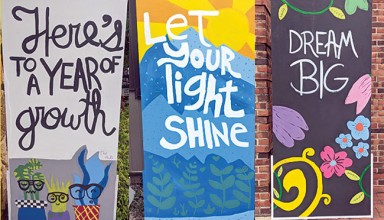 Here's
TO A YEAR OF
growth
LET
YOUR
light
SHINE
DREAM
BIG